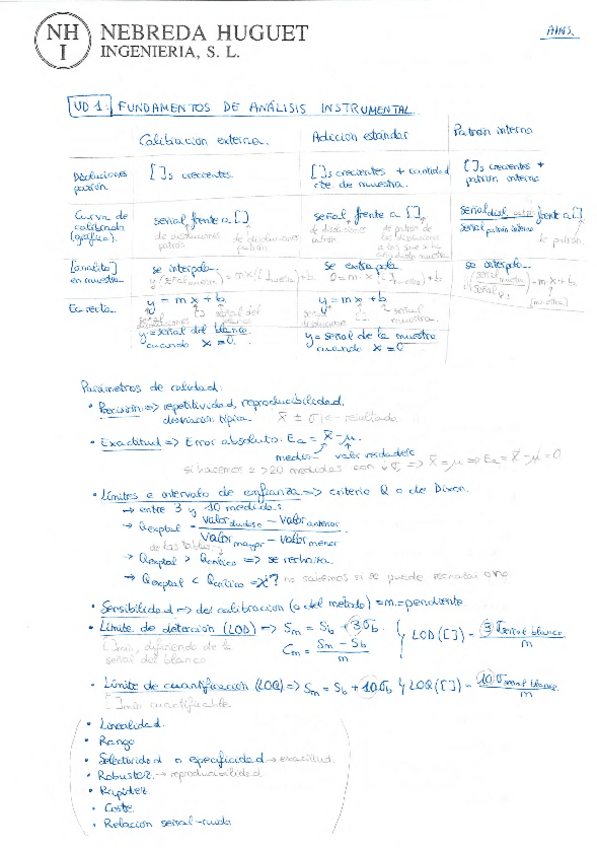 NH
I
NEBREDA HUGUET
INGENIERIA, S. L.
AINS.
UD 1. FUNDAMENTOS DE ANÁLISIS INSTRUMENTAL
Calibración externa.
Adición estándar
Patrón interno
Disoluciones patrón
[ ]s crecientes.
[ ]s crecientes + cantidad cte. de muestra.
[ ]s crecientes + patrón interno
Curva de calibrado (gráfica).
señal frente a [ ]
de disoluciones patrón
de disoluciones patrón
señal frente a [ ]
de disoluciones patrón
de patrón de las disoluciones
señal disol. patrón frente a [ ]
señal patrón interno
de patrón
[analito] en muestra
se interpola
= m × [ ]muestra + b
se extrapola
0 = m · [ ]muestra + b
se interpola
= m × + b
(muestra)
Ec. recta
y = m x + b
señal disoluciones
[ ]
señal del blanco
y = señal del blanco cuando x = 0.
y = m x + b
señal disoluciones
[ ]
señal muestra
y = señal de la muestra cuando x = 0
Parámetros de calidad:
• Precisión => repetitividad, reproducibilidad.
desviación típica. x̄ ± σ ← resultado
• Exactitud => Error absoluto: Ea = x̄ - μ.
media valor verdadero
si hacemos = >20 medidas con ↓σ => x̄ = μ => Ea = x̄ - μ = 0
• Límites e intervalo de confianza => criterio Q o de Dixon.
→ entre 3 y 10 medidas.
→ Qexptal = valor dudoso - valor anterior
valor mayor - valor menor
de las tablas
→ Qexptal > Qcrítico => se rechaza.
→ Qexptal < Qcrítico => x? no sabemos si se puede rechazar o no
• Sensibilidad => de calibración (o del método) = m = pendiente.
• Límite de detección (LOD) => Sm = Sb + 3σb. } LOD ([ ]) = 3σseñal blanco
m
[ ]mín, difiriendo de la señal del blanco
Cm = Sm - Sb
m
• Límite de cuantificación (LOQ) => Sm = Sb + 10σb } LOQ ([ ]) = 10σseñal blanco
m
[ ]mín cuantificable.
• Linealidad.
• Rango
• Selectividad o especificidad → exactitud.
• Robustez. → reproducibilidad
• Rapidez
• Coste
• Relación señal-ruido